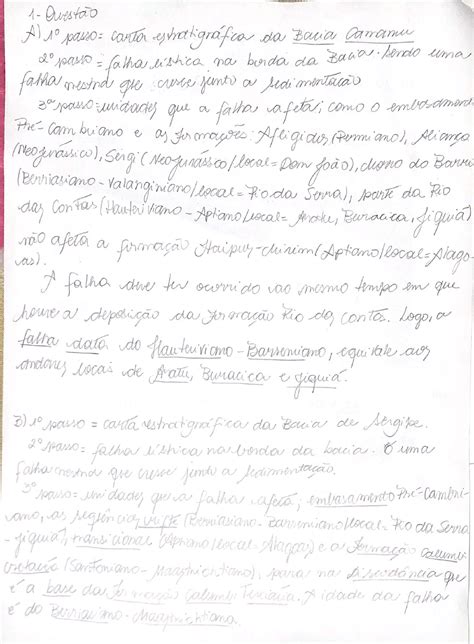 1- Questão
A) 1º passo = carta estratigráfica da Bacia Camamu
2º passo = falha lístrica na borda da Bacia. Sendo uma
falha mestra que cresce junto a sedimentação
3º passo = unidades que a falha afeta; como o embasamento
Pré-Cambriano e as formações: Afligidos (Permiano), Aliança
(Neojurássico), Sergi (Neojurássico/local = Dom João), Morro do Barro
(Berriasiano-Valanginiano/local = Rio da Serra), parte da Rio
das Contas (Hauteriviano - Aptiano/local = Aratu, Buracica, Jiquiá)
não afeta a formação Itaipus-mirim (Aptiano/local = Alago-
as).
A falha deve ter ocorrido ao mesmo tempo em que
houve a deposição da formação Rio das Contas. Logo, a
falha data do Hauteriviano - Barremiano, equivale aos
andares locais de Aratu, Buracica e Jiquiá.
B) 1º passo = carta estratigráfica da Bacia de Sergipe.
2º passo = falha lístrica na borda da bacia. É uma
falha mestra que cresce junto a sedimentação.
3º passo = unidades que a falha afeta; embasamento Pré-Cambri-
ano, as sequências (Berriasiano - Barremiano/local = Rio da Serra
- Jiquiá), transicional (Aptiano/local = Alagoas) e a Formação Calumbi
(Santoniano - Maastrichtiano), para na discordância que
é a base da Formação Calumbi Terciária. A idade da falha
é do Berriasiano - Maastrichtiano.